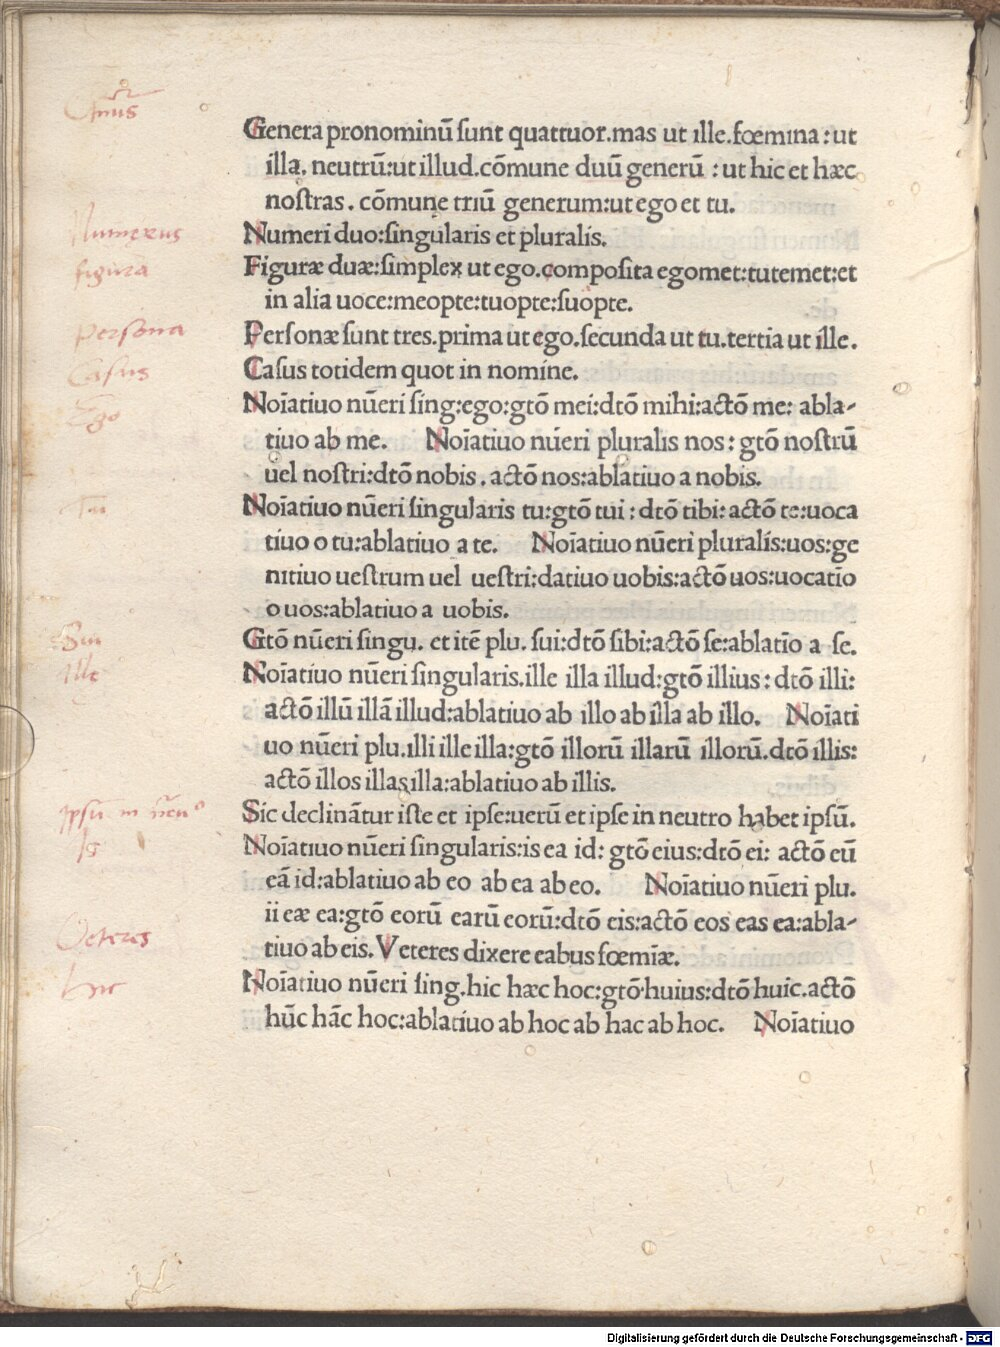 Genera pronominū sunt quattuor.mas ut ille.fœmina:ut
illa. neutrū:ut illud.cōmune duū generū : ut hic et hæc
nostras . cōmune triū generum:ut ego et tu.
Numerus
Numeri duo:singularis et pluralis.
figura
Figuræ duæ:simplex ut ego.composita egomet:tutemet:et
in alia uoce:meopte:tuopte:suopte.
persona
Personæ sunt tres.prima ut ego.secunda ut tu.tertia ut ille.
Casus
Casus totidem quot in nomine.
Ego
Noīatiuo nūeri sing:ego:gtō mei:dtō mihi:actō me: abla-
tiuo ab me. Noīatiuo nūeri pluralis nos: gtō nostrū
uel nostri:dtō nobis . actō nos:ablatiuo a nobis.
Tu
Noīatiuo nūeri singularis tu:gtō tui : dtō tibi: actō te:uoca
tiuo o tu:ablatiuo a te. Noīatiuo nūeri pluralis:uos:ge
nitiuo uestrum uel uestri:datiuo uobis:actō uos:uocatīo
o uos:ablatiuo a uobis.
Sui
Gtō nūeri singu. et itē plu. sui:dtō sibi:actō se:ablatīo a se.
Ille
Noīatiuo nūeri singularis.ille illa illud:gtō illius: dtō illi:
actō illū illā illud:ablatiuo ab illo ab illa ab illo. Noīati
uo nūeri plu.illi ille illa:gtō illorū illarū illorū.dtō illis:
actō illos illas illa:ablatiuo ab illis.
Ipsū in neu°
Sic declināntur iste et ipse:uerū et ipse in neutro habet ipsū.
Is
Noīatiuo nūeri singularis:is ea id: gtō eius:dtō ei: actō eū
eā id:ablatiuo ab eo ab ea ab eo. Noīatiuo nūeri plu.
ii eæ ea:gtō eorū earū eorū:dtō eis:actō eos eas ea:abla-
Veteres
tiuo ab eis. Veteres dixere eabus fœmīæ.
hic
Noīatiuo nūeri sing.hic hæc hoc:gtō huius:dtō huic.actō
hūc hāc hoc:ablatiuo ab hoc ab hac ab hoc. Noīatiuo
Digitalisierung gefördert durch die Deutsche Forschungsgemeinschaft - DFG